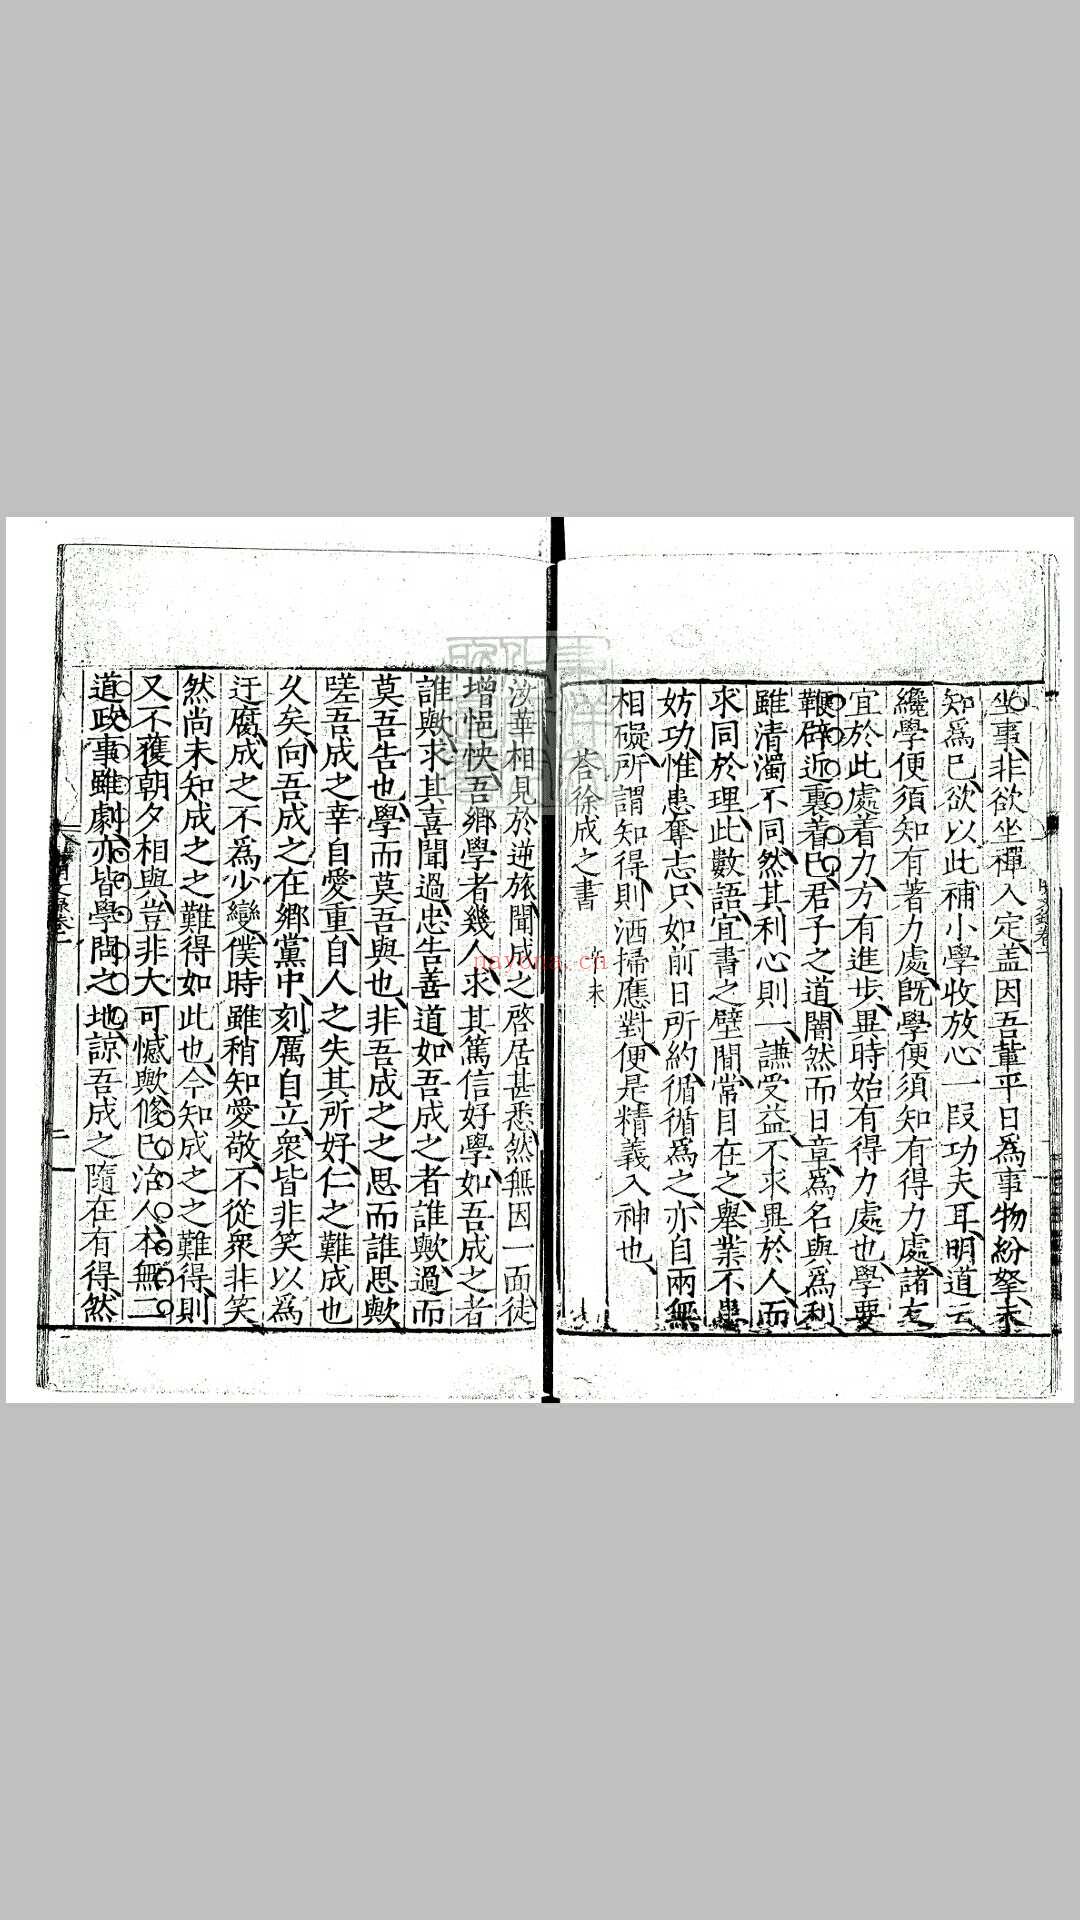 坐事、非欲坐禪入定、盖因吾輩平日爲事物紛拏、未
知爲巳、欲以此補小學收放心一叚功夫耳、明道云
纔學便須知有著力處、旣學便須知有得力處、諸友
宜於此處着力、方有進步、異時始有得力處也、學要
鞭辟近裏着巳、君子之道、闇然而日章、爲名與爲利
雖清濁不同、然其利心則一、謙受益、不求異於人、而
求同於理、此數語、宜書之壁間、常目在之、舉業不患
妨功、惟患奪志、只如前日所約、循循爲之、亦自兩無
相礙、所謂知得、則洒掃應對、便是精義入神也、
荅徐成之書
未
汝華相見於逆旅、聞成之啓居甚悉、然無因一面、徒
增悒怏、吾鄉學者幾人、求其篤信好學、如吾成之者
誰歟、求其喜聞過、忠告善道、如吾成之者誰歟、過而
莫吾告也、學而莫吾與也、非吾成之之思而誰思歟、
嗟吾成之幸自愛重、自人之失其所好、仁之難成也
久矣、向吾成之在鄉黨中、刻厲自立、衆皆非笑以爲
迂腐、成之不爲少變、僕時雖稍知愛敬、不從衆非笑
然尚未知成之之難得如此也、今知成之之難得、則
又不獲朝夕相與、豈非大可憾歟、修巳治人、本無二
道、政事雖劇、亦皆學問之地、諒吾成之隨在有得、然
明文錄卷一
二
nayona.cn